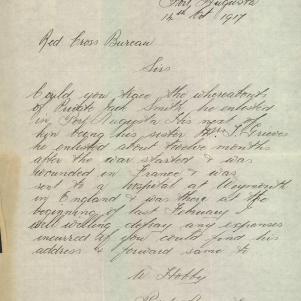 Port Augusta
14th Oct 1917
Red Cross Bureau
Sirs
Could you trace the whereabouts
of Private Jack Smith, he enlisted
in Port Augusta His next of
kin being his sister Mrs J. Grieves
he enlisted about twelve months
after the war started & was
wounded in France & was
sent to a hospital at Weymouth
in England & was there at the
beginning of last February I
will willing defray any expenses
incurred if you could find his
address & forward same to
W Hobby
Port Augusta